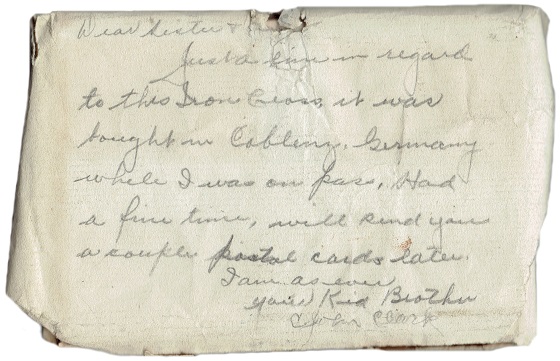 Dear Sister &
Just a line in regard
to this Iron Cross, it was
bought in Coblenz, Germany
while I was on pass. Had
a fine time, will send you
a couple postal cards later.
I am as ever
your Kid Brother
John Clark